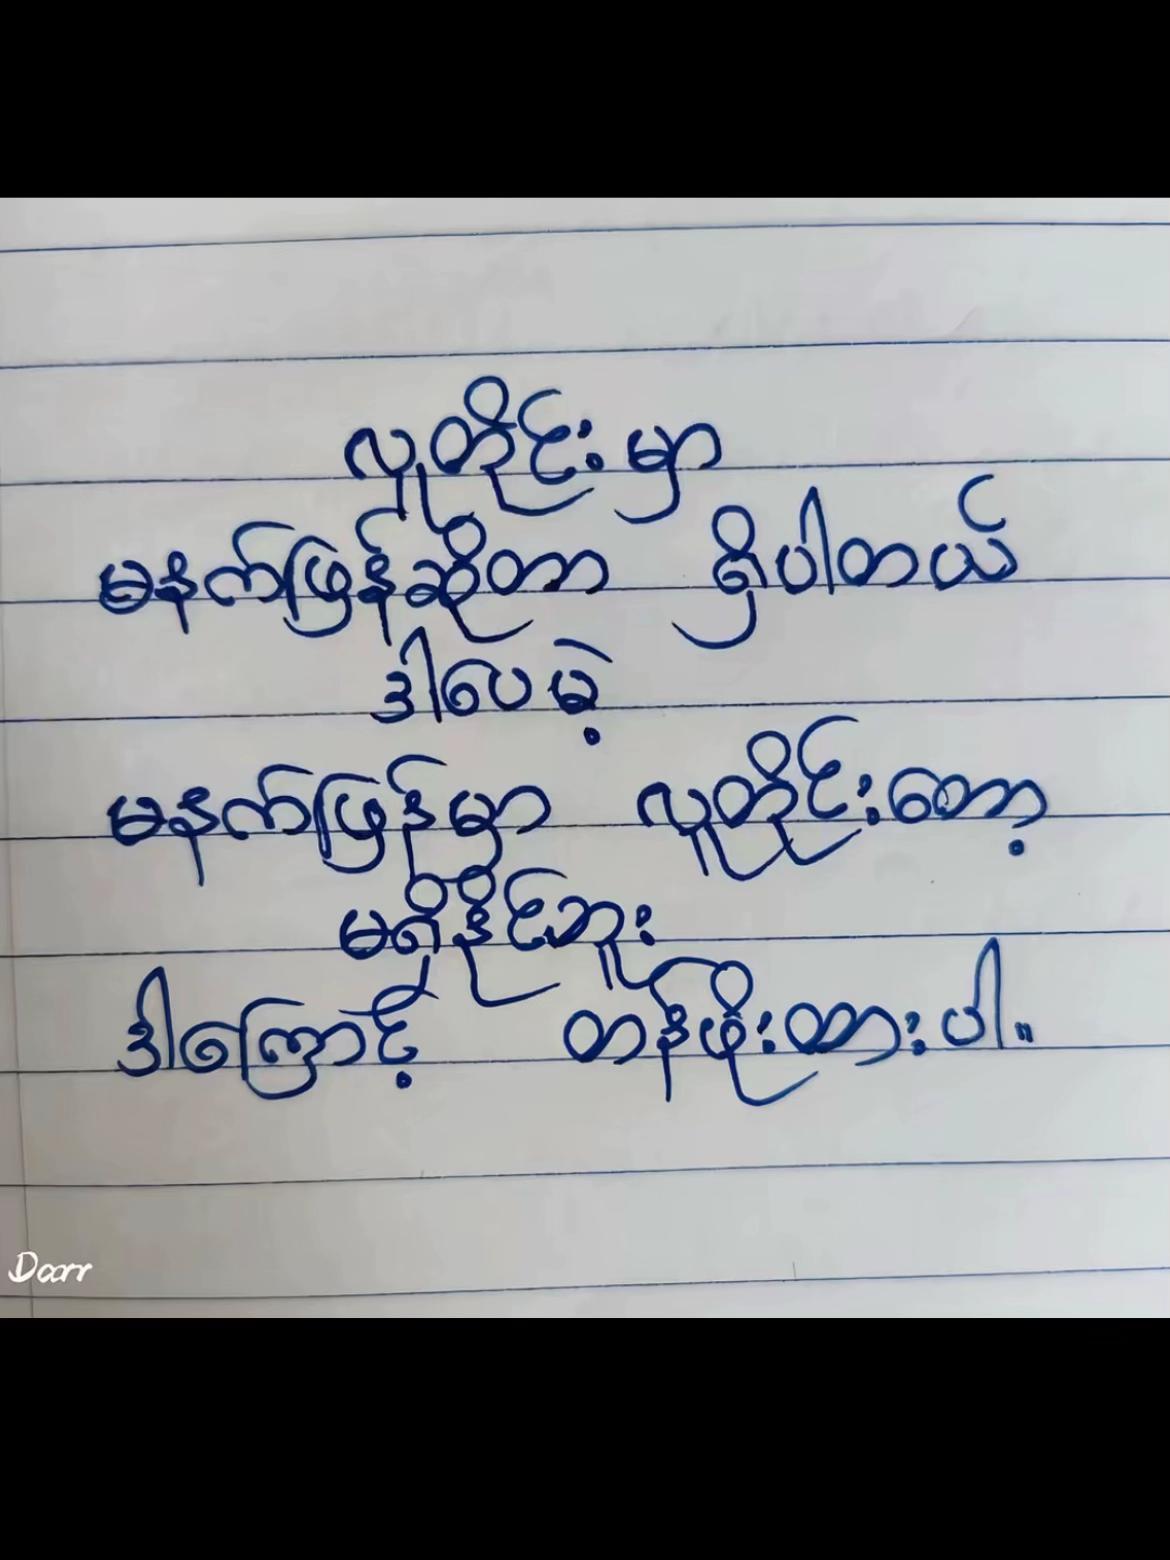 လူတိုင်းမှာ
မနက်ဖြန်ဆိုတာ ရှိပါတယ်
ဒါပေမဲ့
မနက်ဖြန်မှာ လူတိုင်းတော့
မရှိနိုင်ဘူး
ဒါကြောင့် တန်ဖိုးထားပါ။
Doarr